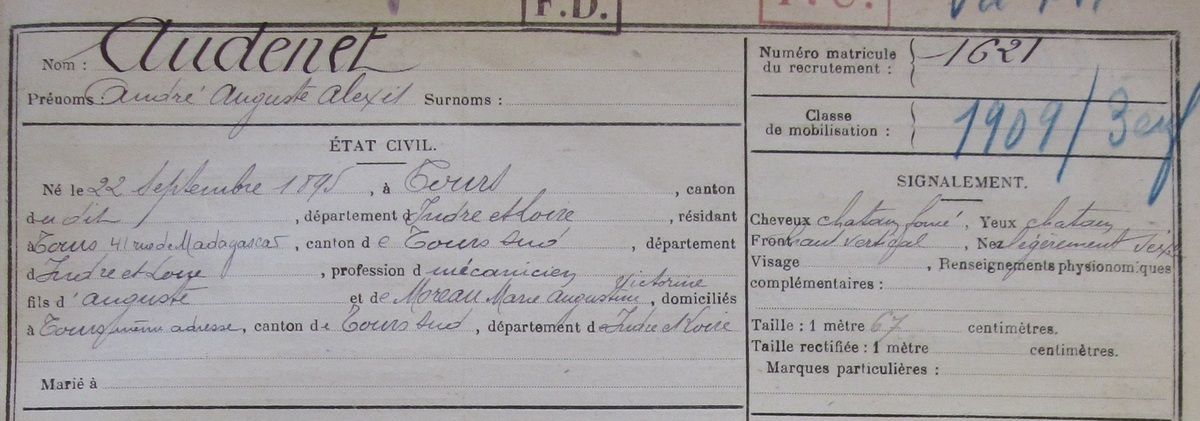 F.D.
Nom : Audenet
Prénoms : André Auguste Alexis Surnoms :
ÉTAT CIVIL.
Né le 22 Septembre 1895, à Tours, canton
du dit, département d'Indre et Loire, résidant
à Tours 41 rue de Madagascar, canton de Tours sud, département
d'Indre et Loire, profession d mécanicien
fils d'Auguste et de Moreau Marie Augustine Victorine, domiciliés
à Tours même adresse, canton de Tours sud, département de Indre et Loire
Marié à
Numéro matricule
du recrutement : 1621
Classe
de mobilisation : 1909/3
SIGNALEMENT.
Cheveux chatain foncé, Yeux chatain
Front haut vertical, Nez légèrement
Visage , Renseignements physionomiques
complémentaires :
Taille : 1 mètre 67 centimètres.
Taille rectifiée : 1 mètre centimètres.
Marques particulières :